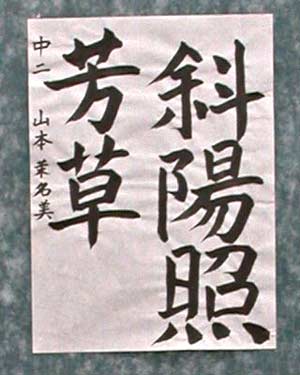 斜陽照
芳草
中二 山本 茉名美